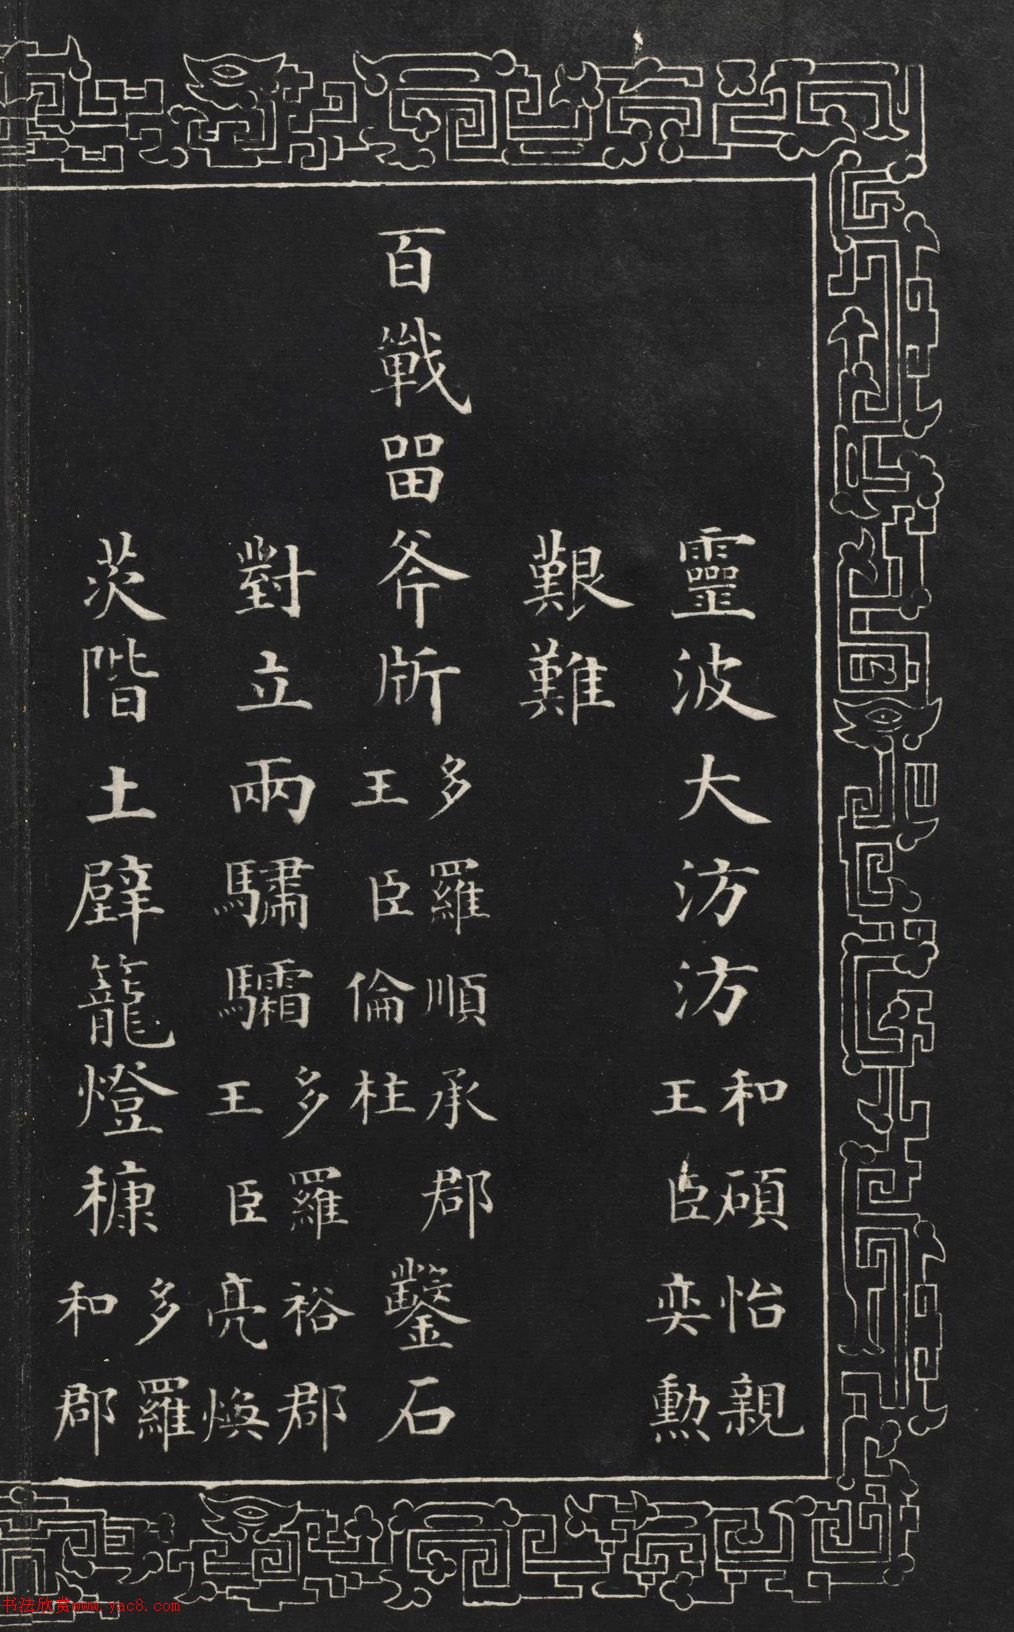 靈波大汸汸和碩怡親王臣奕勳
艱難
百戰畱斧㫁多羅順承郡王臣倫柱鑿石
對立兩驌驦多羅裕郡王臣亮煥
茨階土壁籠燈穅多羅和郡
书法欣赏www.yac8.com